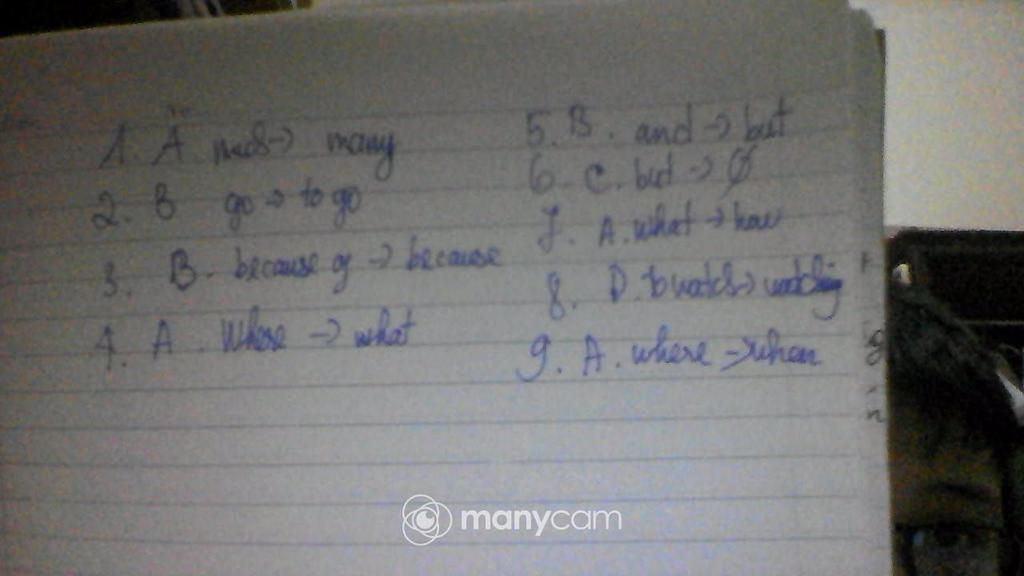 1. A much → many
2. B go → to go
3. B. because of → because
4. A. Where → what
5. B. and → but
6. C. but → Ø
7. A. what → how
8. D. to watch → watching
9. A. where → when
manycam